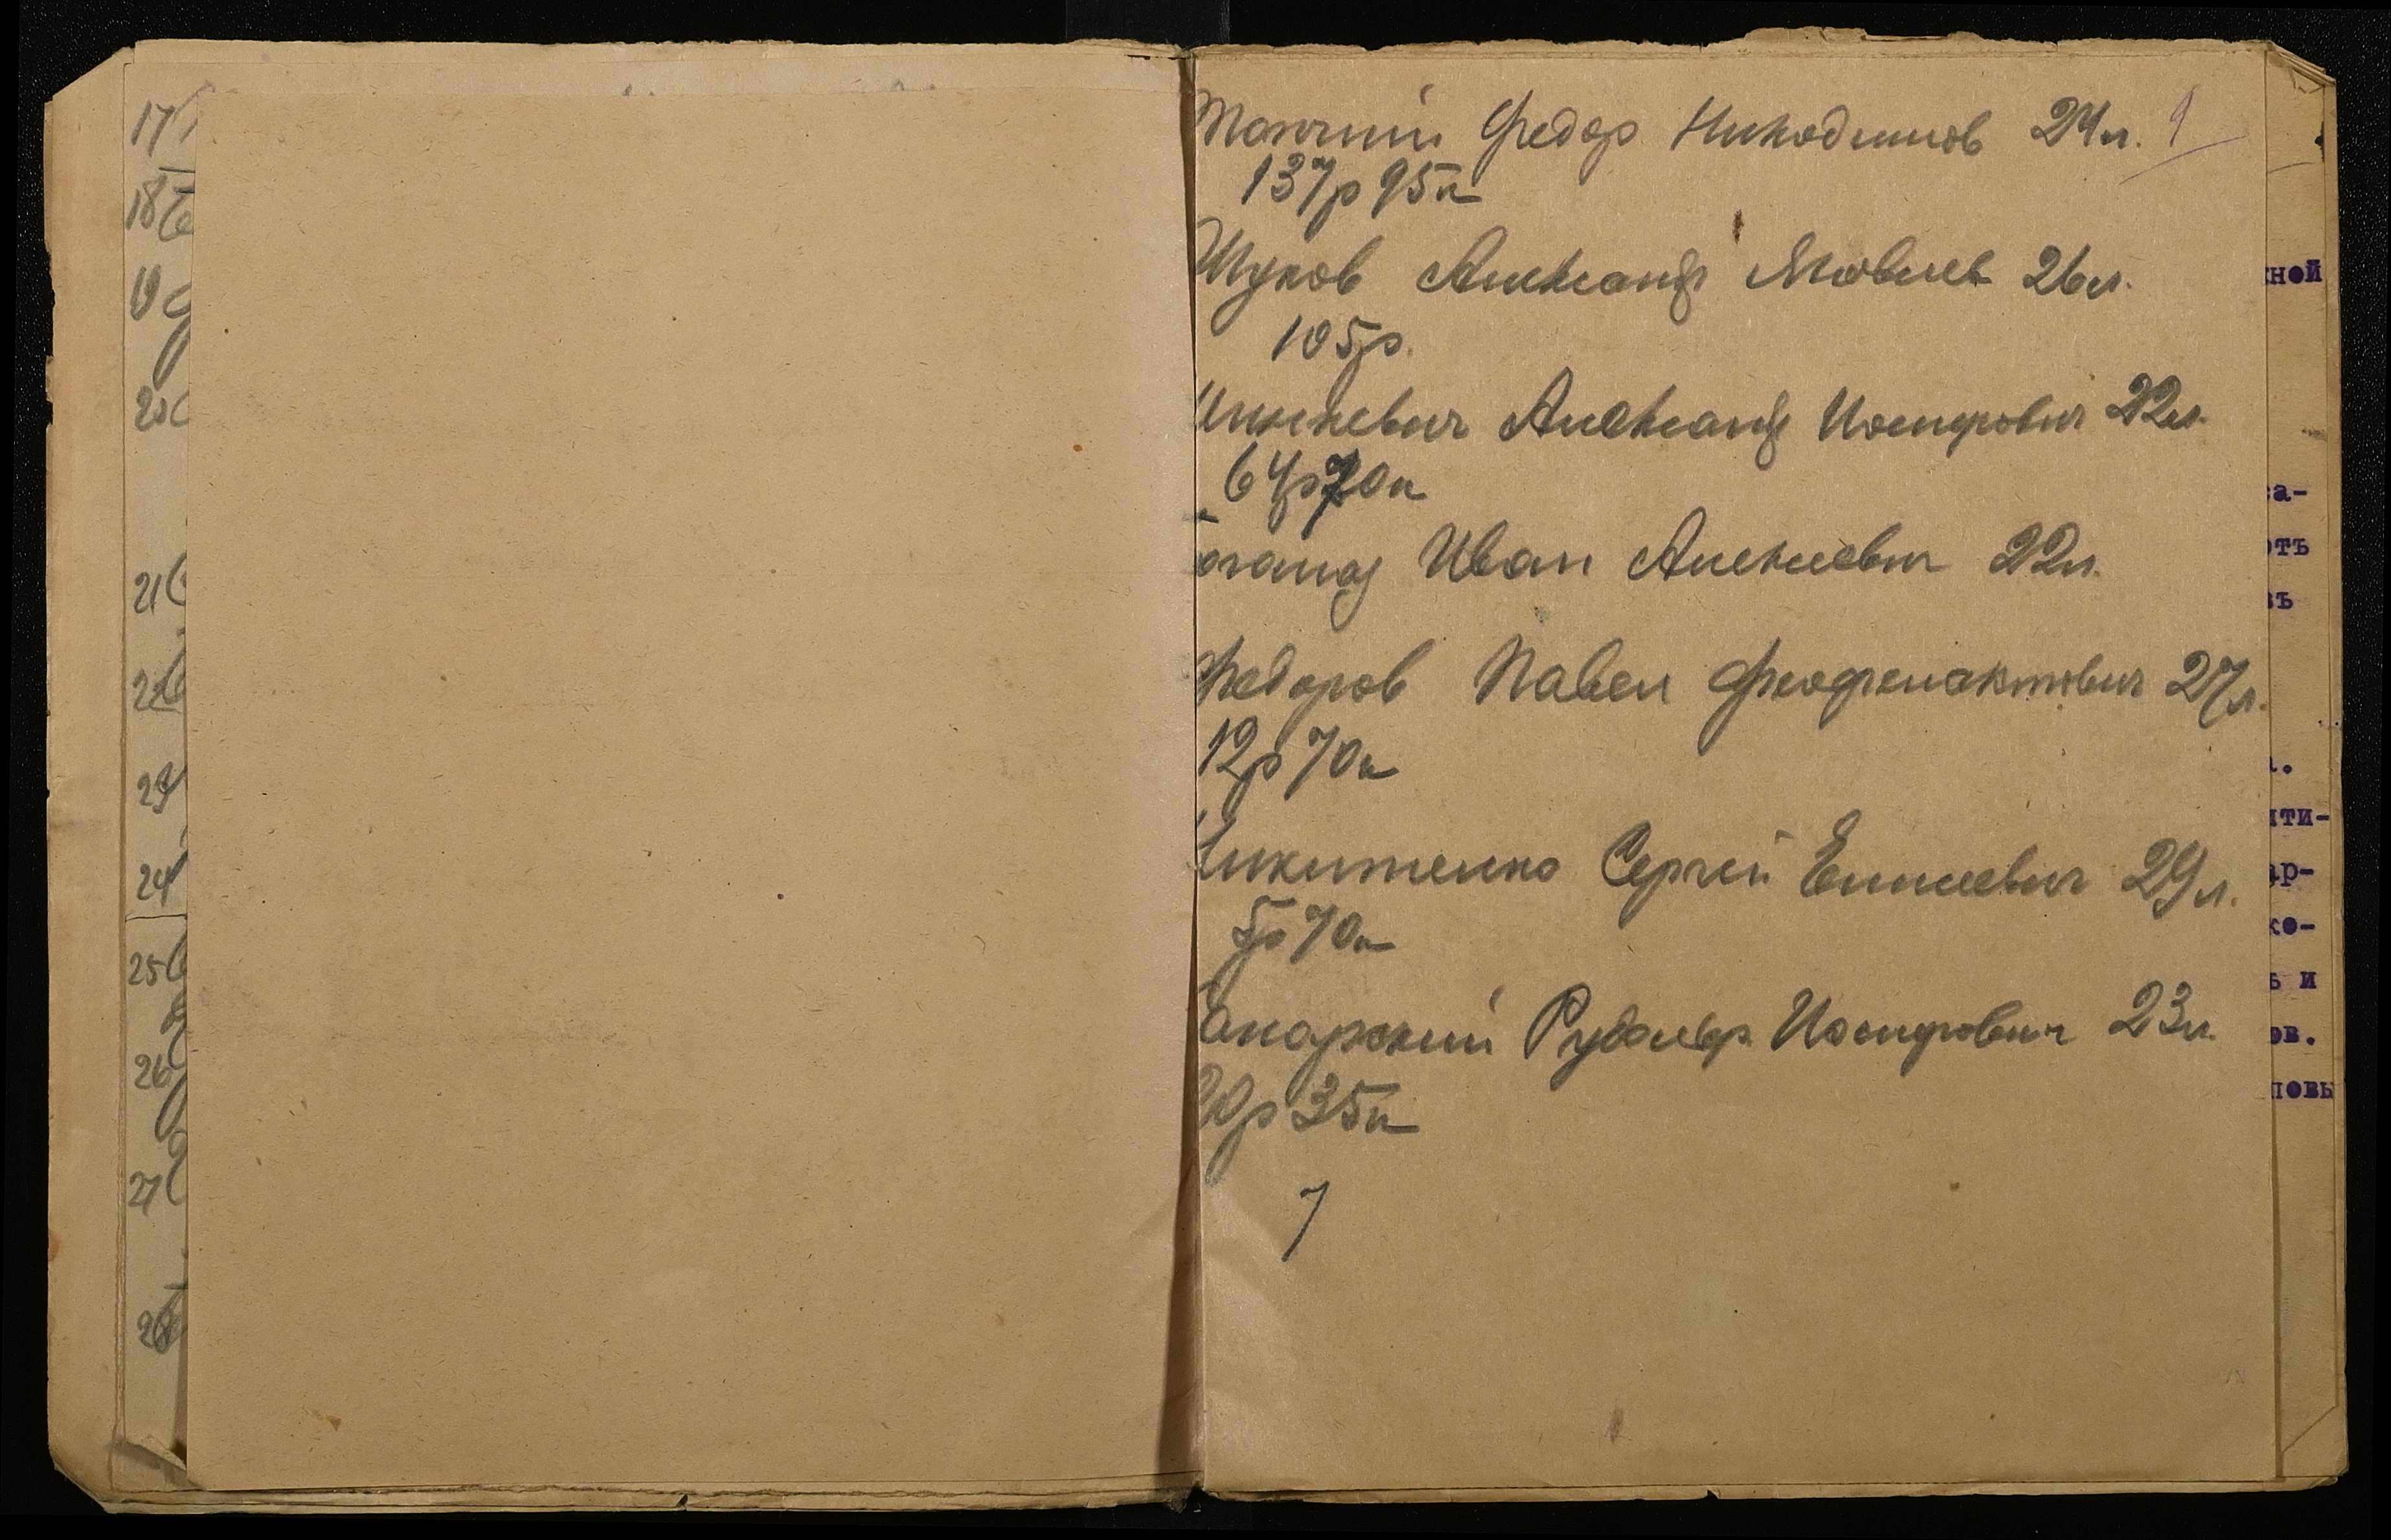 17
18
19
20
21
22
23
24
25
26
27
28
Федор Никодимов 24л. 9
137р 95к
Жуков Александр Яковлев 26л.
105р.
Александр Иосифович 22л.
64р 70к
Иван Алексеевич 22л.
Федоров Павел Феофелактович 27л.
12р 70к
Никитенко Сергей Елисеевич 29л.
5р 70к
Рудольф Иосифович 23л.
90р 35к
7
ной
са-
отъ
въ
ити-
ар-
ко-
ъ и
ов.
повы